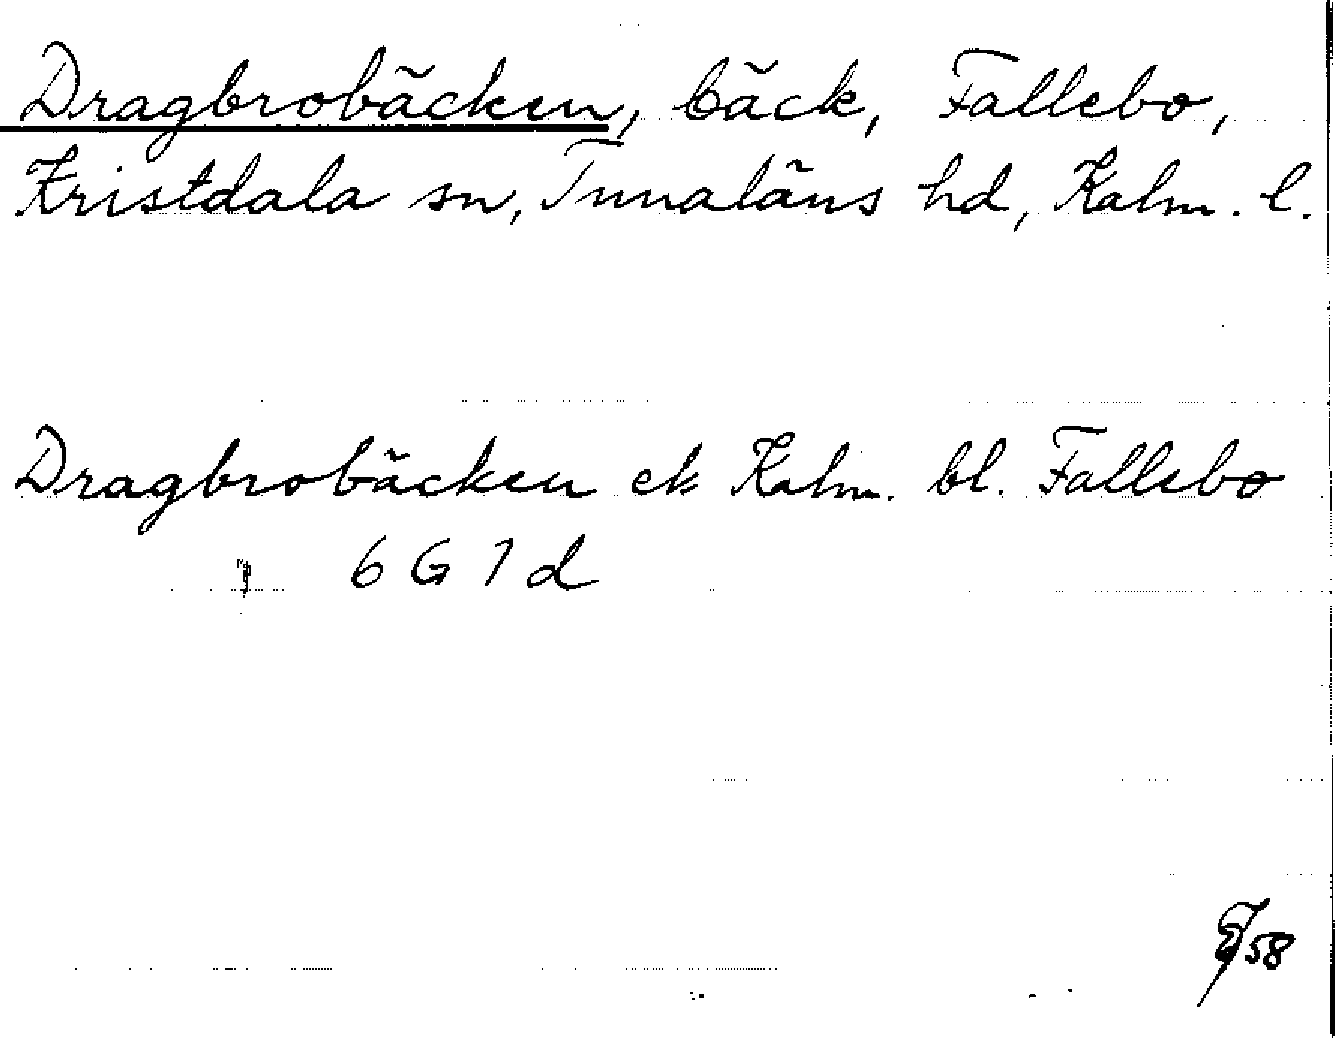 Dragbrobäcken, bäck, Fallebo,
Kristdala sn, Tunaläns hd, Kalm. l.
Dragbrobäcken ek Kalm. bl. Fallebo
6 G 1 d
58